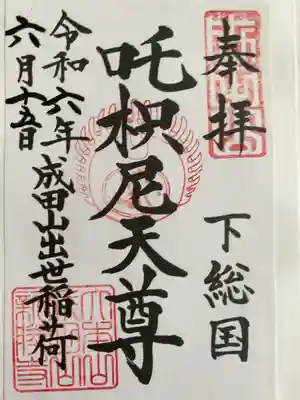 奉拝
下総国
吒枳尼天尊
成田山出世稲荷
令和六年
六月十五日